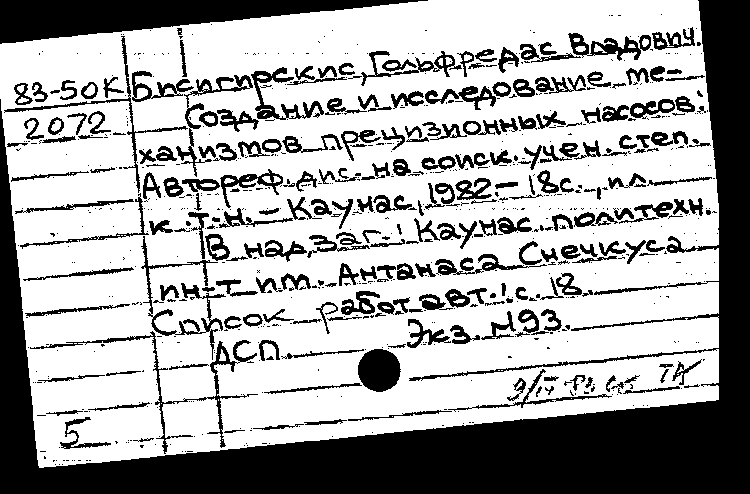 83-50К Бисигирскис, Гольфредас Владович.
2072 Создание и исследование ме-
ханизмов прецизионных насосов:
Автореф. дис. на соиск. учен. степ.
к.т.н. – Каунас, 1982. – 18с., ил.
В надзаг.: Каунас. политехн.
ин-т им. Антанаса Снечкуса
Список работ авт.: с. 18.
ДСП. Экз. №93.
9/IV-83
5